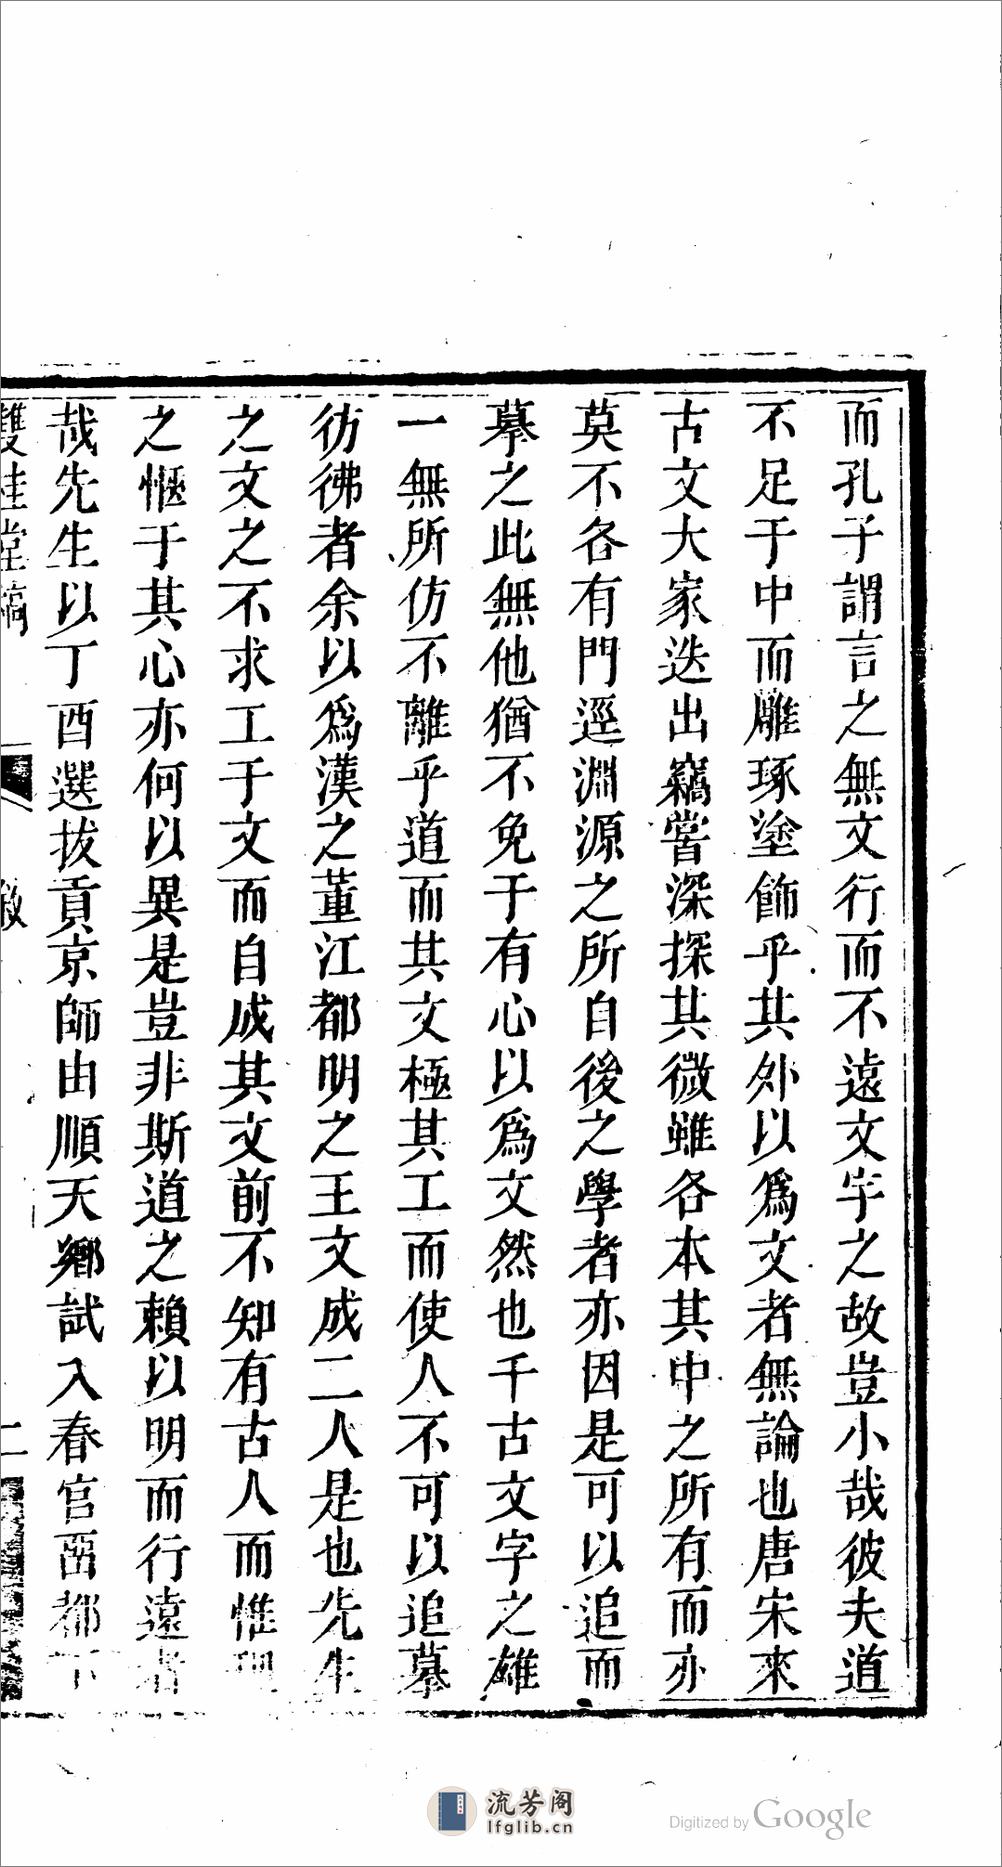 而孔子謂言之無文行而不遠文字之故豈小哉彼夫道
不足于中而雕琢塗飾乎其外以爲文者無論也唐宋來
古文大家迭出竊嘗深探其微雖各本其中之所有而亦
莫不各有門逕淵源之所自後之學者亦因是可以追而
摹之此無他猶不免于有心以爲文然也千古文字之雄
一無所仿不離乎道而其文極其工而使人不可以追摹
彷彿者余以爲漢之董江都明之王文成二人是也先生
之文之不求工于文而自成其文前不知有古人而惟理
之愜于其心亦何以異是豈非斯道之賴以明而行遠者
哉先生以丁酉選拔貢京師由順天鄉試入春官畱都下
雙桂堂稿 敘 二
流芳阁
lfglib.cn
Digitized by Google